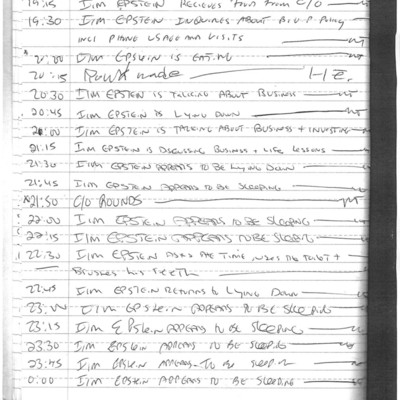 19:15 I/M EPSTEIN RECIEVES FOOD FROM C/O
19:30 I/M EPSTEIN INQUIRES ABOUT
INCL PHONE USAGE AND VISITS
20:00 I/M EPSTEIN IS EATING
20:15 Rounds made
20:30 I/M EPSTEIN IS TALKING ABOUT BUSINESS
20:45 I/M EPSTEIN IS LYING DOWN
21:00 I/M EPSTEIN IS TALKING ABOUT BUSINESS + INVESTING
21:15 I/M EPSTEIN IS DISCUSSING BUSINESS + LIFE LESSONS
21:30 I/M EPSTEIN APPEARS TO BE LYING DOWN
21:45 I/M EPSTEIN APPEARS TO BE SLEEPING
*21:50 C/O ROUNDS
22:00 I/M EPSTEIN APPEARS TO BE SLEEPING
22:15 I/M EPSTEIN APPEARS TO BE SLEEPING
22:30 I/M EPSTEIN ASKS THE TIME USES THE TOILET +
BRUSHES HIS TEETH
22:45 I/M EPSTEIN RETURNS TO LYING DOWN
23:00 I/M EPSTEIN APPEARS TO BE SLEEPING
23:15 I/M EPSTEIN APPEARS TO BE SLEEPING
23:30 I/M EPSTEIN APPEARS TO BE SLEEPING
23:45 I/M EPSTEIN APPEARS TO BE SLEEPING
0:00 I/M EPSTEIN APPEARS TO BE SLEEPING